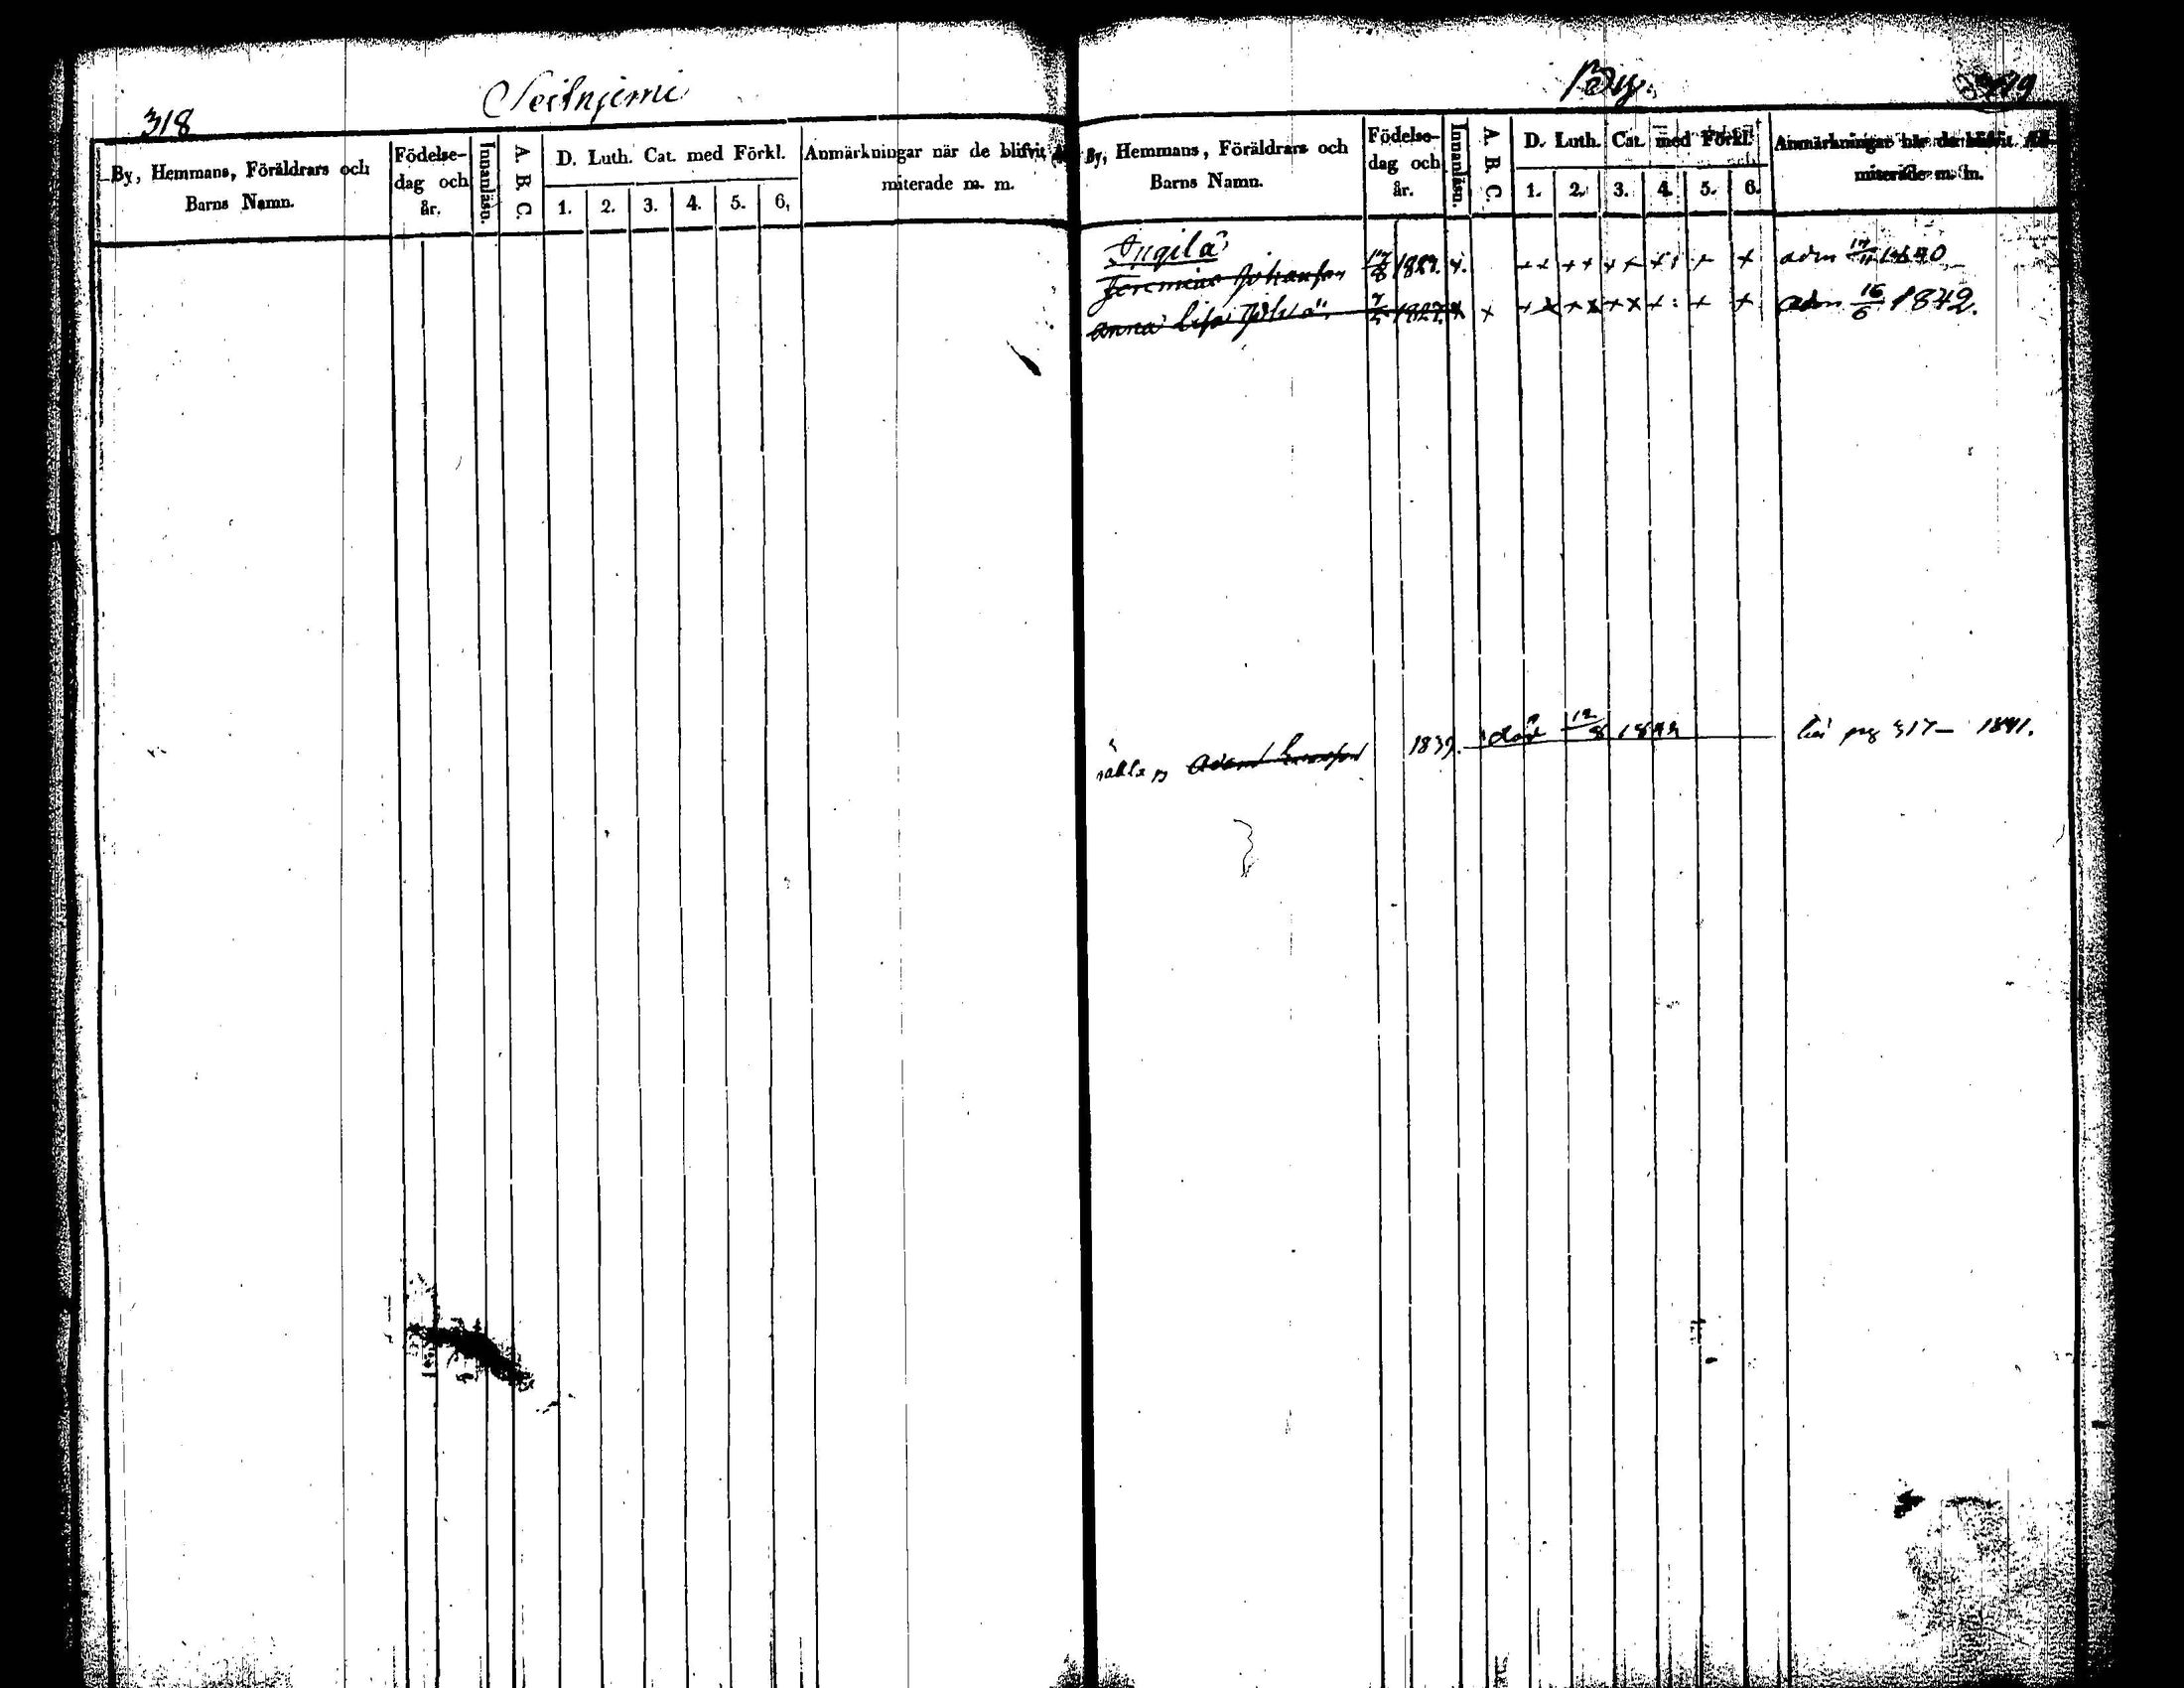 318
Seitnjemi
By, Hemmans, Föräldrars och Barns Namn.
Födelse-dag och år.
Innanläsn.
A. B. C.
D. Luth. Cat. med Förkl.
1. 2. 3. 4. 5. 6.
Anmärkningar när de blifvit miterade m. m.
By.
319
By, Hemmans, Föräldrars och Barns Namn.
Födelse-dag och år.
Innanläsn.
A. B. C.
D. Luth. Cat. med Förkl.
1. 2. 3. 4. 5. 6.
Anmärkningar när de blifvit Ad-miterade m. m.
Ingila
Jeremias Johansson 1827. + ++ ++ ++ + + + adm 1840
Anna Lisa 1827. + + ++ ++ ++ + + + adm 16/6 1842.
Adam 1839. död 12/8 pag 317 - 1841.